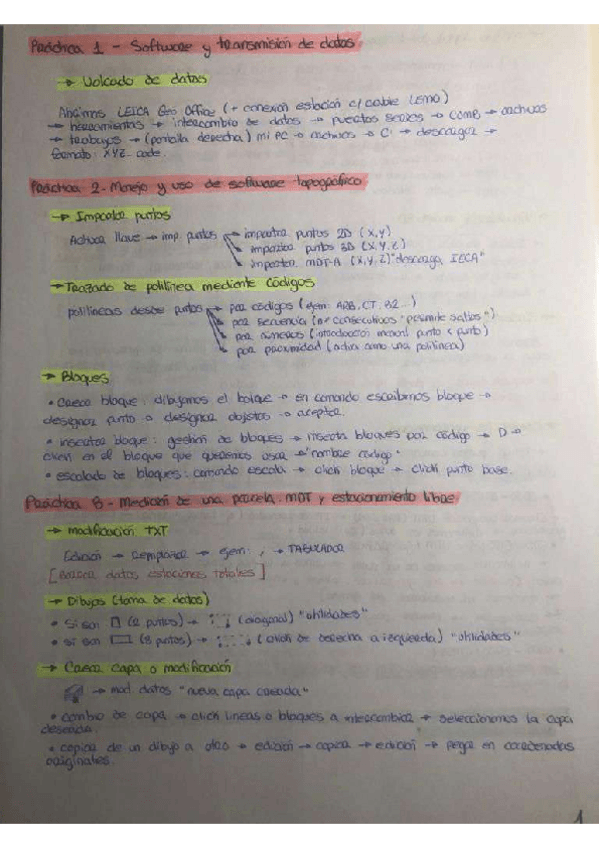 Práctica 1 - Software y transmisión de datos
→ Volcado de datos
Abrimos LEICA Geo Office (+ conexión estación c/ cable LEMO)
→ herramientas → intercambio de datos → puertos series → COM8 → archivos
→ trabajos → (pantalla derecha) mi PC → archivos → C: → descargar →
formato: XYZ code.
Práctica 2 - Manejo y uso de software topográfico
→ Importar puntos
Activar llave → imp. puntos → importar puntos 2D (X,Y)
importar puntos 3D (X,Y,Z)
importar MDT-A (X,Y,Z) "descarga,
→ Trazado de polilínea mediante códigos
polilíneas desde puntos → por códigos (ejem: ARB, CT, B2...)
por secuencia (nº consecutivos "permite saltos")
por números (introducción manual punto x punto)
por proximidad (actúa como una polilínea)
→ Bloques
• Crear bloque: dibujamos el bloque → en comando escribimos bloque →
designar punto → designar objetos → aceptar.
• insertar bloque: gestión de bloques → inserta bloques por código → D →
click en el bloque que queramos usar → "nombre código"
• escalado de bloques: comando escala → click bloque → click punto base.
Práctica 3 - Medición de una parcela. MDT y estacionamiento libre
→ modificación TXT
Edición → reemplazar → ejem: , → TABULADOR
[Borrar datos estaciones totales]
→ Dibujos (toma de datos)
• Si son (2 puntos) → (diagonal) "utilidades"
• si son (3 puntos) → (click de derecha a izquierda) "utilidades"
→ Crear capa o modificación
→ mod. datos "nueva capa creada"
• cambio de capa → click líneas o bloques a intercambiar → seleccionamos la capa
deseada.
• copiar de un dibujo a otro → edición → copiar → edición → pegar en coordenadas
originales.
1